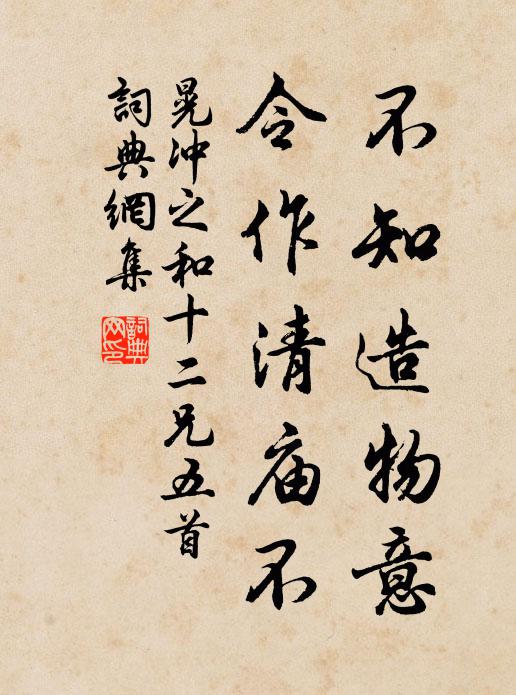 不知造物意
令作清庙不
晁冲之和十二兄五首
詞典網集
詞典網印